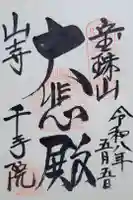 宝珠山
令和八年
五月五日
大悲殿
山寺
千手院